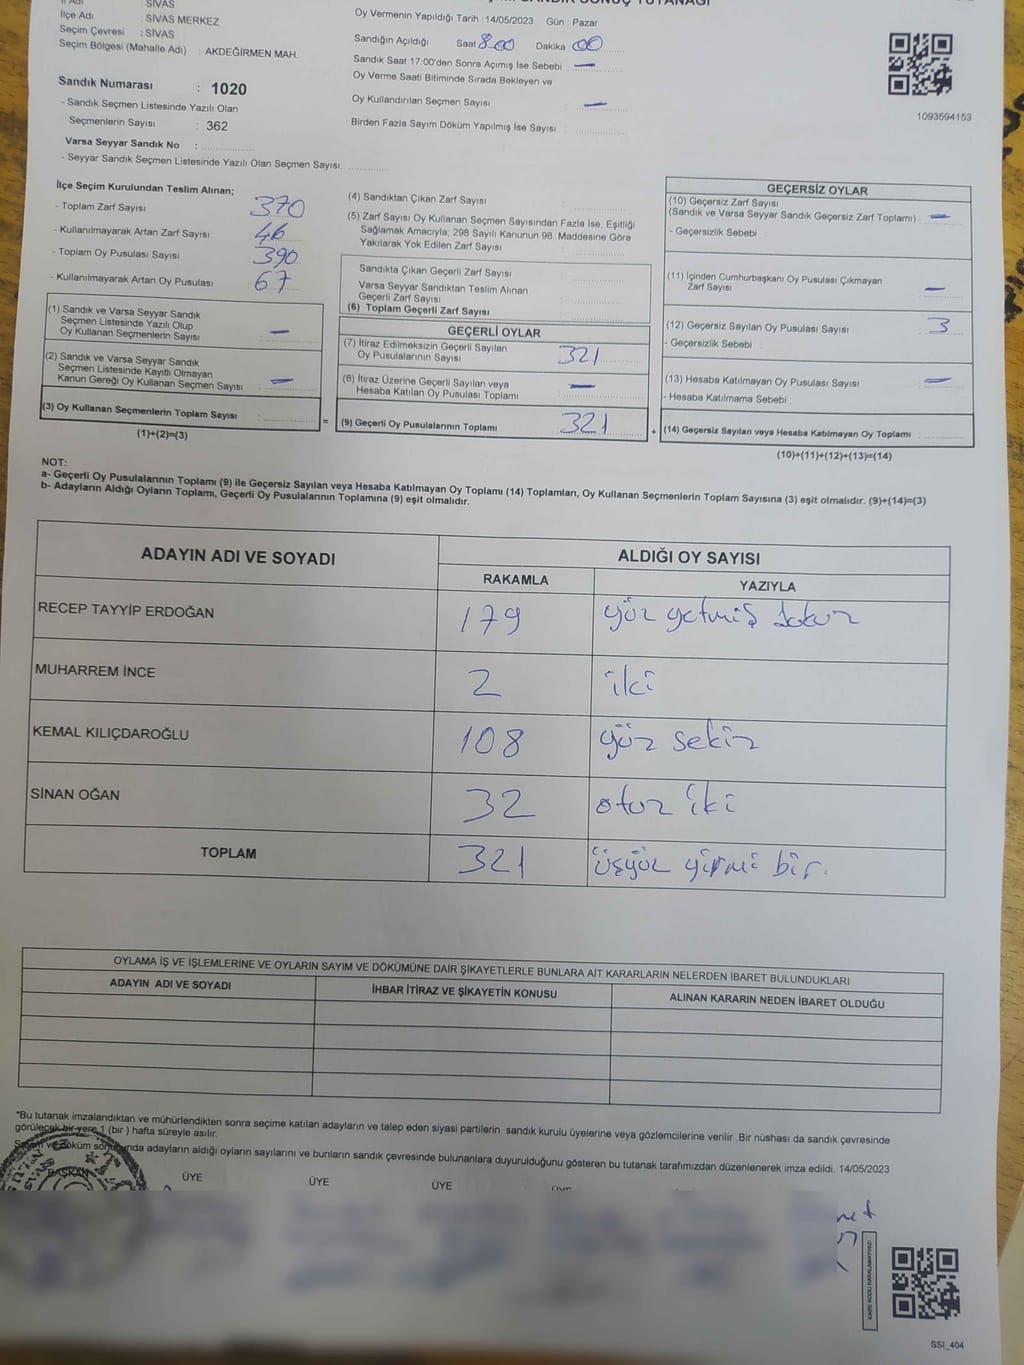 İl Adı : SİVAS
İlçe Adı : SİVAS MERKEZ
Seçim Çevresi : SİVAS
Seçim Bölgesi (Mahalle Adı) : AKDEĞİRMEN MAH.
SANDIK SONUÇ TUTANAĞI
Oy Vermenin Yapıldığı Tarih : 14/05/2023 Gün : Pazar
Sandığın Açıldığı Saat 8.00 Dakika 00
Sandık Saat 17:00'den Sonra Açımış İse Sebebi : —
Oy Verme Saati Bitiminde Sırada Bekleyen ve
Oy Kullandırılan Seçmen Sayısı : —
Birden Fazla Sayım Döküm Yapılmış İse Sayısı :
1093594153
Sandık Numarası : 1020
- Sandık Seçmen Listesinde Yazılı Olan
Seçmenlerin Sayısı : 362
Varsa Seyyar Sandık No :
- Seyyar Sandık Seçmen Listesinde Yazılı Olan Seçmen Sayısı:
İlçe Seçim Kurulundan Teslim Alınan;
- Toplam Zarf Sayısı 370
- Kullanılmayarak Artan Zarf Sayısı 46
- Toplam Oy Pusulası Sayısı 390
- Kullanılmayarak Artan Oy Pusulası 67
(1) Sandık ve Varsa Seyyar Sandık
Seçmen Listesinde Yazılı Olup
Oy Kullanan Seçmenlerin Sayısı : —
(2) Sandık ve Varsa Seyyar Sandık
Seçmen Listesinde Kayıtlı Olmayan
Kanun Gereği Oy Kullanan Seçmen Sayısı : —
(3) Oy Kullanan Seçmenlerin Toplam Sayısı :
(1)+(2)=(3)
=
(4) Sandıktan Çıkan Zarf Sayısı :
(5) Zarf Sayısı Oy Kullanan Seçmen Sayısından Fazla İse, Eşitliği
Sağlamak Amacıyla; 298 Sayılı Kanunun 98. Maddesine Göre
Yakılarak Yok Edilen Zarf Sayısı :
Sandıkta Çıkan Geçerli Zarf Sayısı :
Varsa Seyyar Sandıktan Teslim Alınan
Geçerli Zarf Sayısı :
(6) Toplam Geçerli Zarf Sayısı :
GEÇERLİ OYLAR
(7) İtiraz Edilmeksizin Geçerli Sayılan
Oy Pusulalarının Sayısı : 321
(8) İtiraz Üzerine Geçerli Sayılan veya
Hesaba Katılan Oy Pusulası Toplamı : —
(9) Geçerli Oy Pusulalarının Toplamı : 321
+
GEÇERSİZ OYLAR
(10) Geçersiz Zarf Sayısı
(Sandık ve Varsa Seyyar Sandık Geçersiz Zarf Toplamı) : —
- Geçersizlik Sebebi :
(11) İçinden Cumhurbaşkanı Oy Pusulası Çıkmayan
Zarf Sayısı : —
(12) Geçersiz Sayılan Oy Pusulası Sayısı : 3
- Geçersizlik Sebebi :
(13) Hesaba Katılmayan Oy Pusulası Sayısı : —
- Hesaba Katılmama Sebebi :
(14) Geçersiz Sayılan veya Hesaba Katılmayan Oy Toplamı :
(10)+(11)+(12)+(13)=(14)
NOT:
a- Geçerli Oy Pusulalarının Toplamı (9) ile Geçersiz Sayılan veya Hesaba Katılmayan Oy Toplamı (14) Toplamları, Oy Kullanan Seçmenlerin Toplam Sayısına (3) eşit olmalıdır. (9)+(14)=(3)
b- Adayların Aldığı Oyların Toplamı, Geçerli Oy Pusulalarının Toplamına (9) eşit olmalıdır.
ADAYIN ADI VE SOYADI ALDIĞI OY SAYISI
RAKAMLA YAZIYLA
RECEP TAYYİP ERDOĞAN 179 yüz yetmiş dokuz
MUHARREM İNCE 2 iki
KEMAL KILIÇDAROĞLU 108 yüz sekiz
SİNAN OĞAN 32 otuz iki
TOPLAM 321 üçyüz yirmi bir.
OYLAMA İŞ VE İŞLEMLERİNE VE OYLARIN SAYIM VE DÖKÜMÜNE DAİR ŞİKAYETLERLE BUNLARA AİT KARARLARIN NELERDEN İBARET BULUNDUKLARI
ADAYIN ADI VE SOYADI İHBAR İTİRAZ VE ŞİKAYETİN KONUSU ALINAN KARARIN NEDEN İBARET OLDUĞU
*Bu tutanak imzalandıktan ve mühürlendikten sonra seçime katılan adayların ve talep eden siyasi partilerin sandık kurulu üyelerine veya gözlemcilerine verilir. Bir nüshası da sandık çevresinde
görülecek bir yere 1 (bir) hafta süreyle asılır.
Sayım ve döküm sonucunda adayların aldığı oyların sayılarını ve bunların sandık çevresinde bulunanlara duyurulduğunu gösteren bu tutanak tarafımızdan düzenlenerek imza edildi. 14/05/2023
BAŞKAN ÜYE ÜYE ÜYE ÜYE
KARE KODU KARALAMAYINIZ!
SSI_404